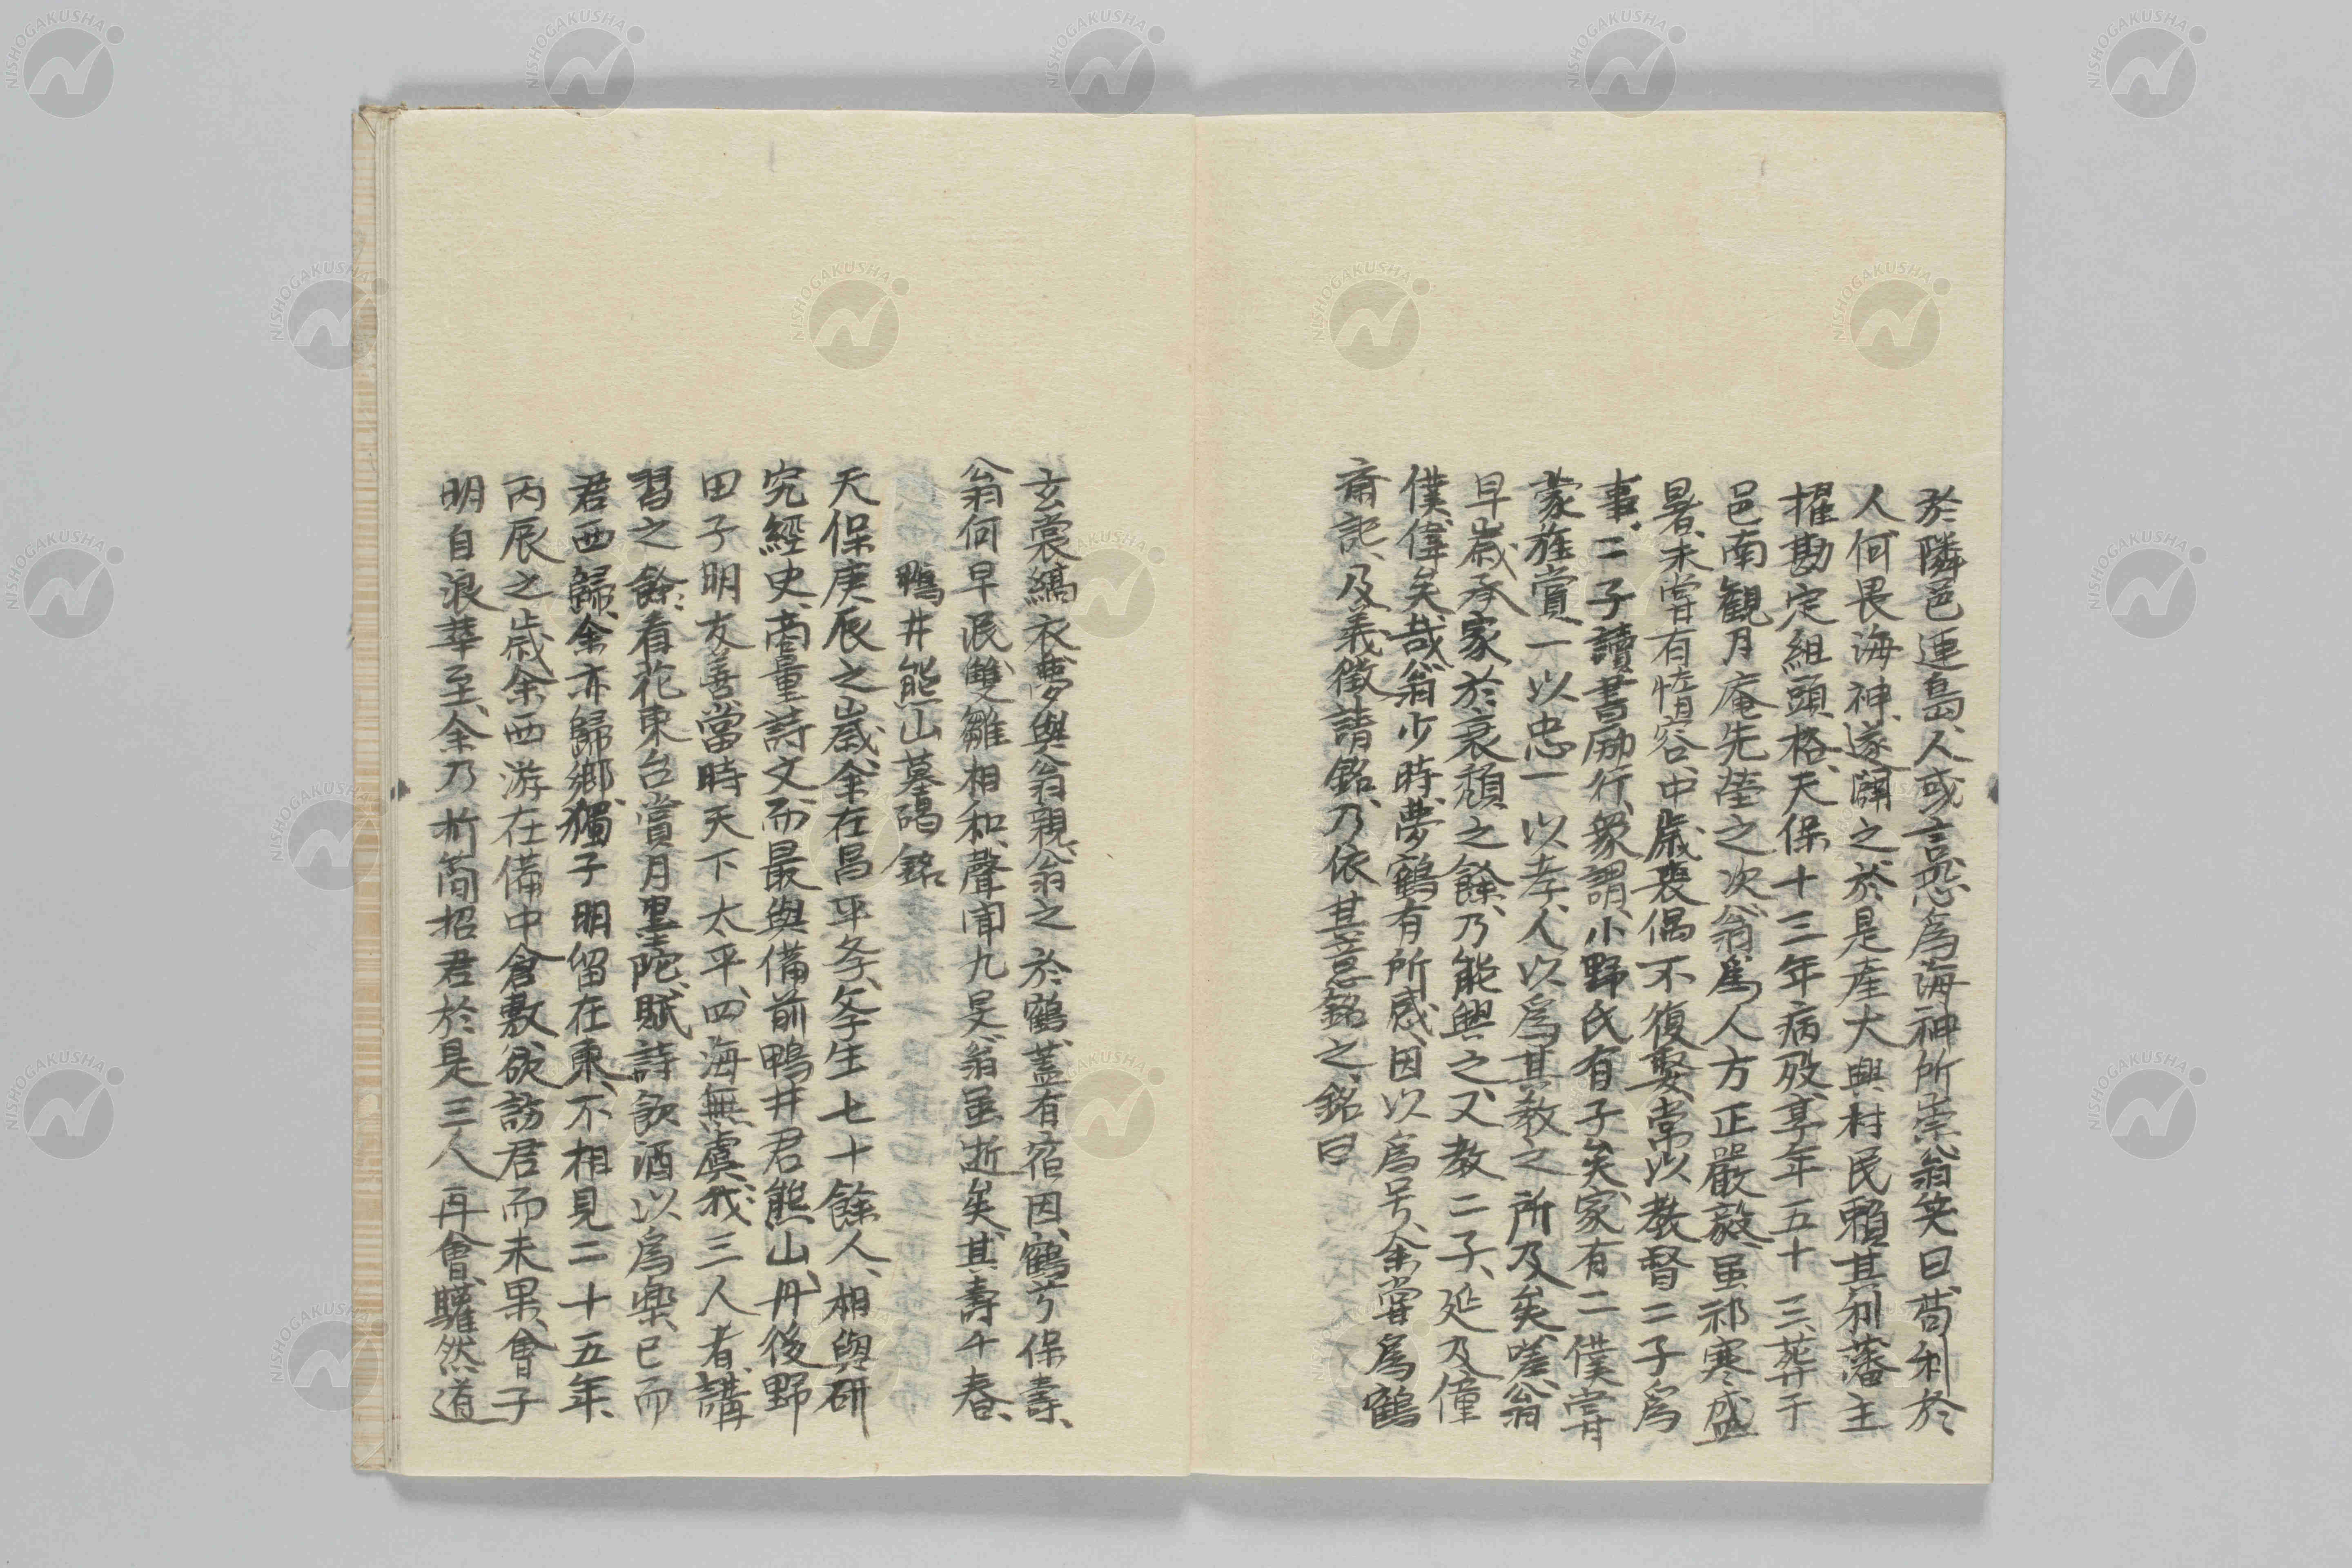 於隣邑連島、人或言恐爲海神所祟、翁笑曰、苟利於
人、何畏海神、遂闢之、於是產大興、村民賴其利、藩主
擢勘定組頭格、天保十三年病歿、享年五十三、葬于
邑南觀月庵先塋之次、翁爲人方正嚴毅、虽祁寒盛
暑、未嘗有惰容、中歲喪偶不復娶、常以教督二子爲
事、二子讀書励行、衆謂、小野氏有子矣、家有二僕、嘗
蒙旌賞、一以忠、一以孝、人以爲其教之所及矣、嗟翁
早歲承家於衰頽之餘、乃能興之、又教二子、延及僮
僕、偉矣哉、翁少時、夢鶴有所感、因以爲号、余嘗爲鶴
斎記、及義徵請銘、乃依其意銘之、銘曰
玄裳縞衣、夢與翁親、翁之於鶴、蓋有宿因、鶴兮保壽、
翁何早泯、雙雛相和、聲聞九旻、翁虽逝矣、其壽千春、
鴨井熊山墓碣銘
天保庚辰之歲、余在昌平黌、黌生七十餘人、相與研
究經史、商量詩文、而最與備前鴨井君熊山、丹後野
田子明友善、當時天下太平、四海無虞、我三人者、講
習之餘、看花東台、賞月墨陀、賦詩飲酒以爲樂、已而
君西歸、余亦歸鄉、獨子明留在東、不相見二十五年、
丙辰之歲、余西游在備中倉敷、欲訪君而未果、會子
明自浪華至、余乃折簡招君、於是三人再會、驩然道